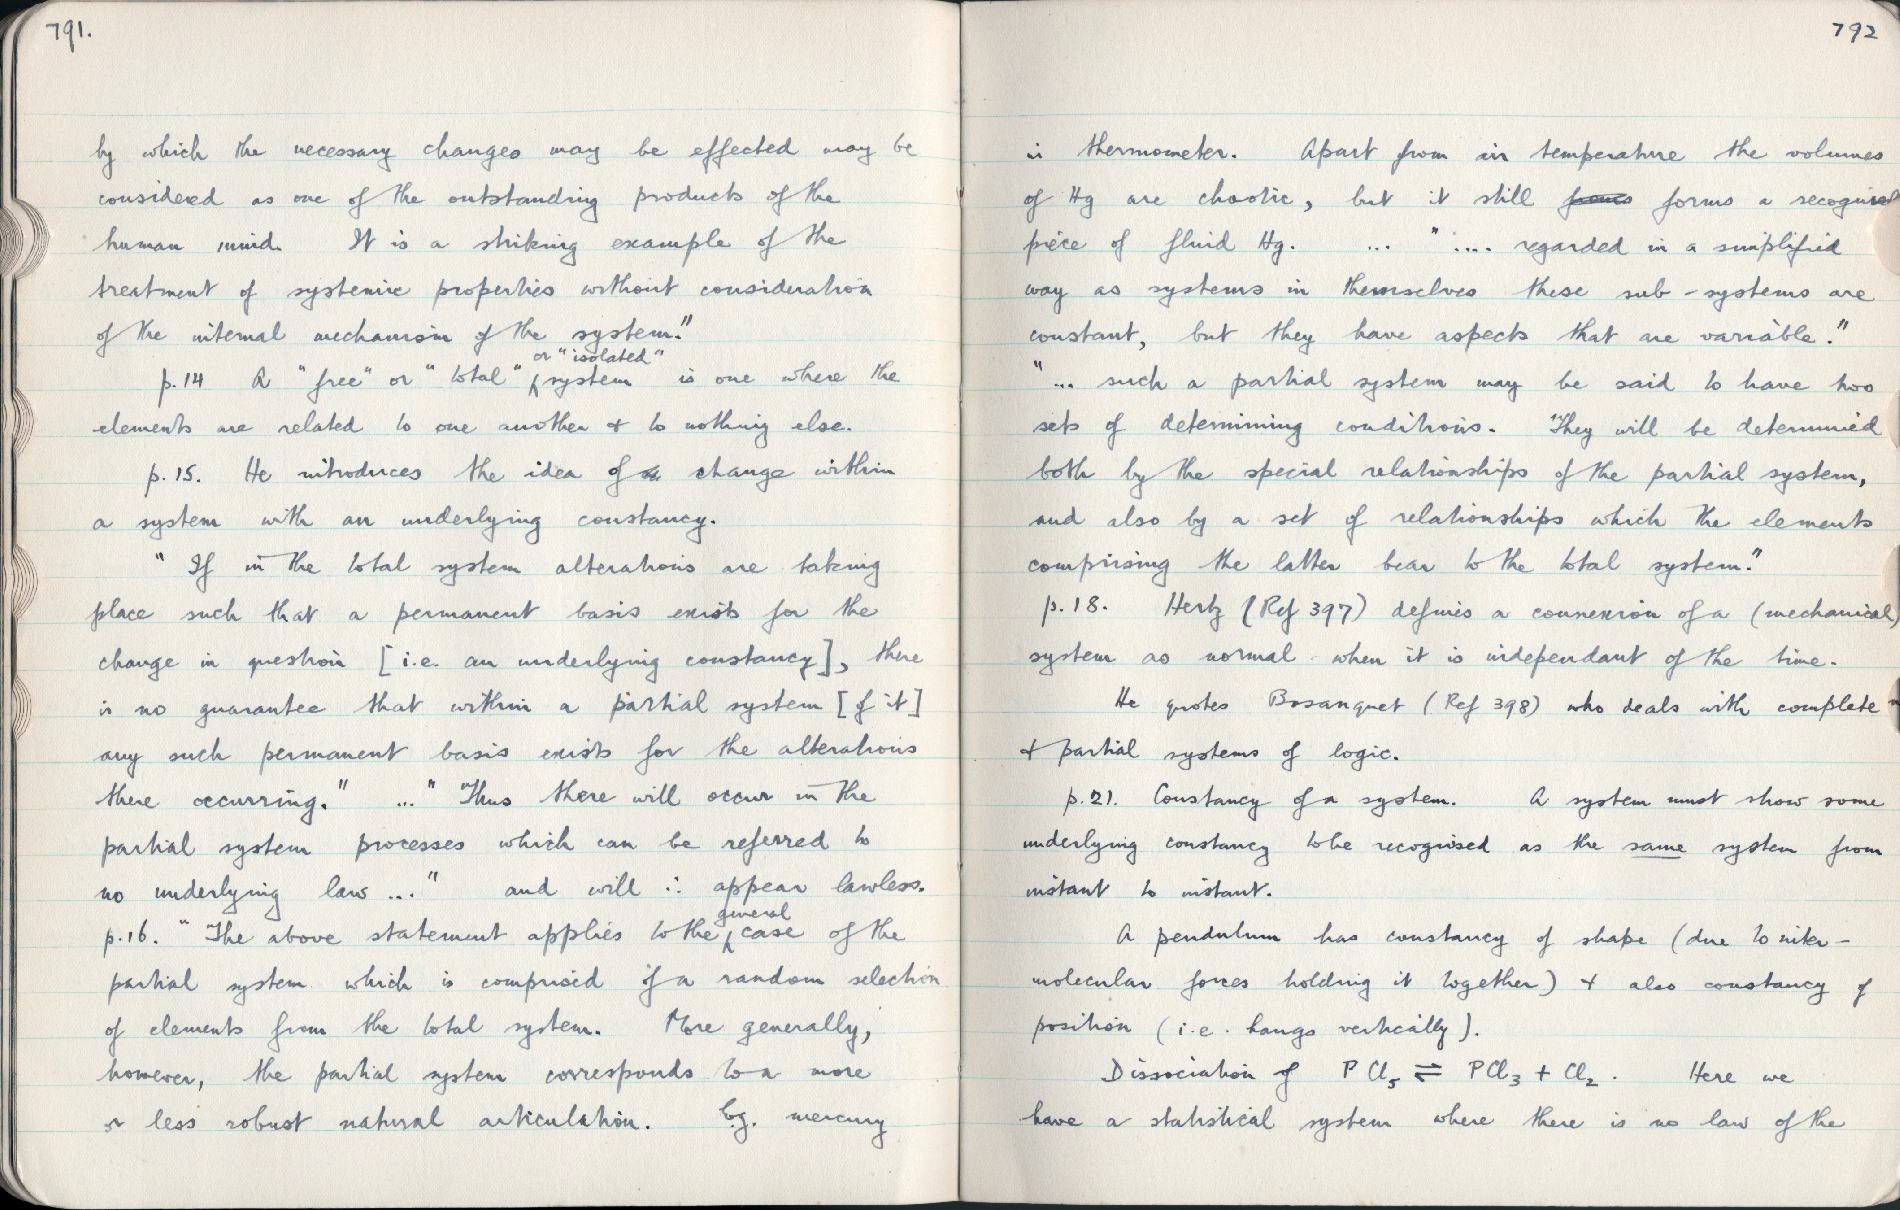 791.
by which the necessary changes may be effected may be
considered as one of the outstanding products of the
human mind. It is a striking example of the
treatment of systemic properties without consideration
of the internal mechanism of the system."
or "isolated"
p.14 A "free" or "total" system is one where the
elements are related to one another & to nothing else.
p.15. He introduces the idea of change within
a system with an underlying constancy.
"If in the total system alterations are taking
place such that a permanent basis exists for the
change in question [i.e. an underlying constancy], there
is no guarantee that within a partial system [of it]
any such permanent basis exists for the alterations
there occurring." ..." Thus there will occur in the
partial system processes which can be referred to
no underlying law ..." and will ∴ appear lawless.
general
p.16. "The above statement applies to the case of the
partial system which is comprised of a random selection
of elements from the total system. More generally,
however, the partial system corresponds to a more
or less robust natural articulation. E.g. mercury
792
in thermometer. Apart from in temperature the volumes
of Hg are chaotic, but it still forms a recognised
piece of fluid Hg. ... ".... regarded in a simplified
way as systems in themselves these sub-systems are
constant, but they have aspects that are variable."
"... such a partial system may be said to have two
sets of determining conditions. They will be determined
both by the special relationships of the partial system,
and also by a set of relationships which the elements
comprising the latter bear to the total system."
p.18. Hertz (Ref 397) defines a connexion of a (mechanical)
system as normal when it is independant of the time.
He quotes Bosanquet (Ref 398) who deals with complete
& partial systems of logic.
p.21. Constancy of a system. A system must show some
underlying constancy to be recognised as the same system from
instant to instant.
A pendulum has constancy of shape (due to inter-
molecular forces holding it together) & also constancy of
position (i.e. hangs vertically).
Dissociation of PCl₅ ⇌ PCl₃ + Cl₂. Here we
have a statistical system where there is no law of the